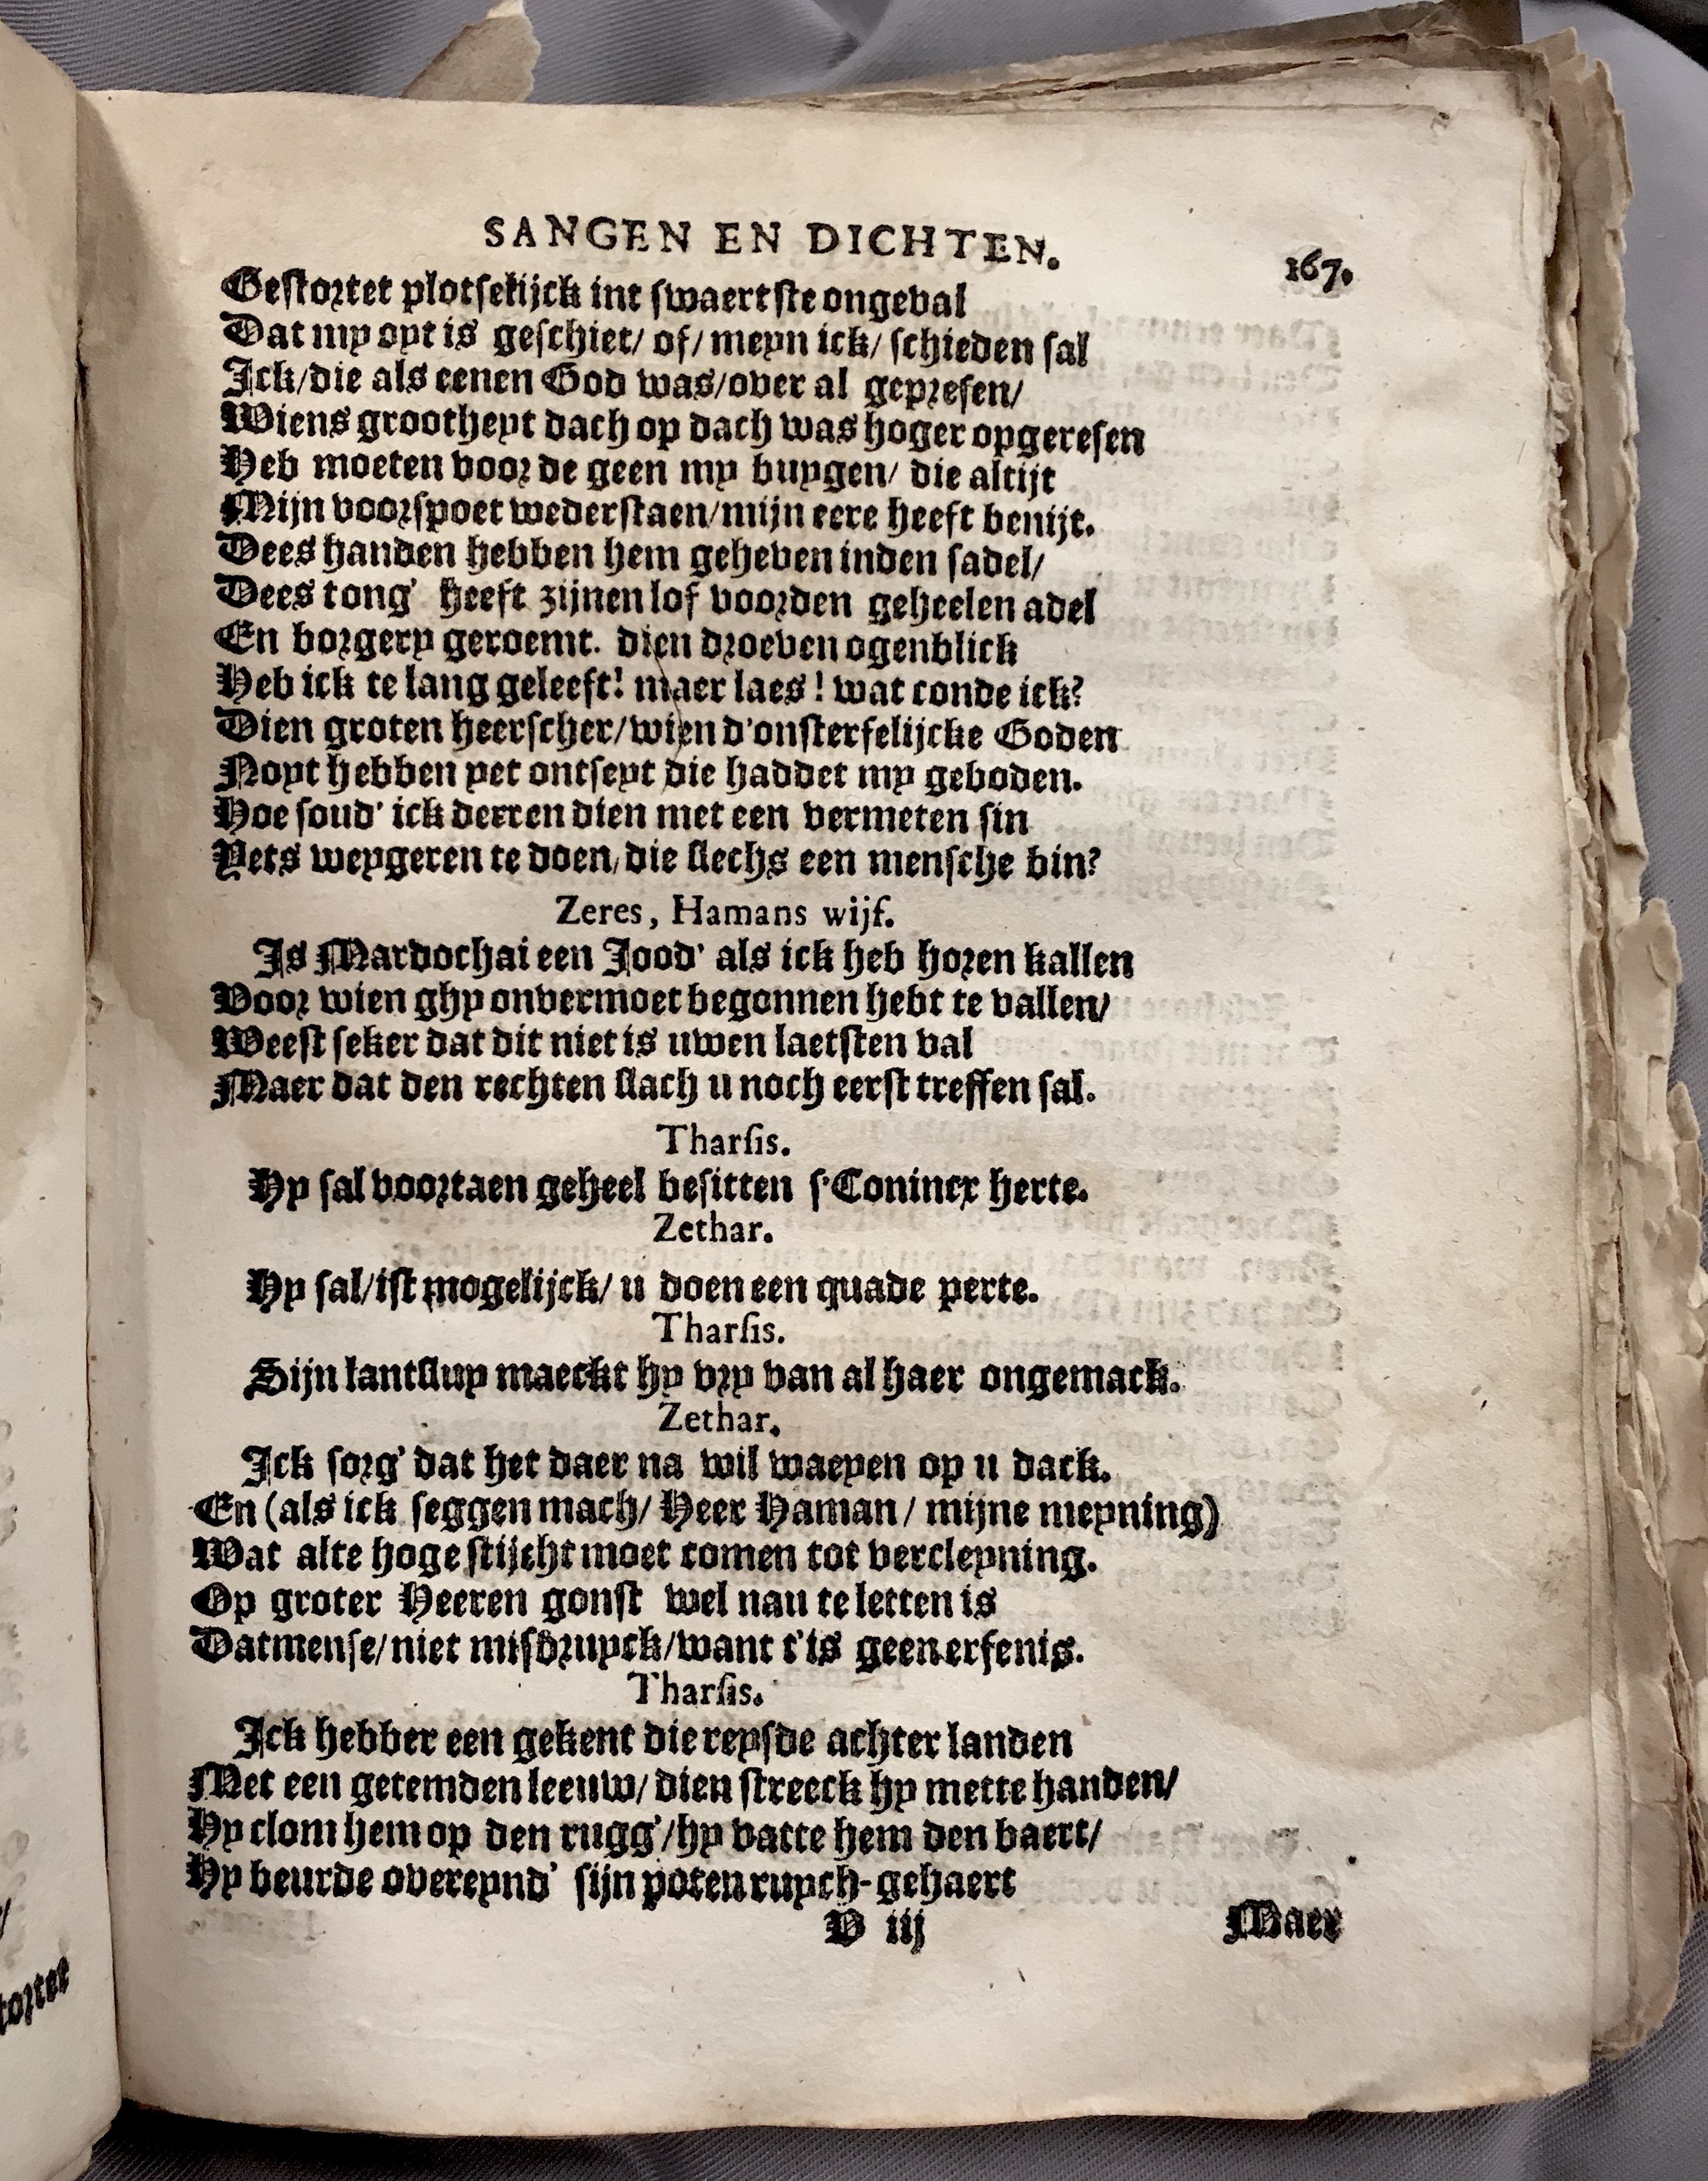 SANGEN EN DICHTEN.
167.
Gestortet plotselijck int swaertste ongeval
Dat my oyt is geschiet/ of/ meyn ick/ schieden sal
Ick/die als eenen God was/over al gepresen/
Wiens grootheyt dach op dach was hoger opgeresen
Heb moeten voor de geen my buygen/ die altijt
Mijn voorspoet wederstaen/mijn eere heeft benijt.
Dees handen hebben hem geheven inden sadel/
Dees tong' heeft zijnen lof voorden geheelen adel
En borgery geroemt. dien droeven ogenblick
Heb ick te lang geleeft! maer laes! wat conde ick?
Dien groten heerscher/wien d'onsterfelijcke Goden
Noyt hebben yet ontseyt die haddet my geboden.
Hoe soud' ick derren dien met een vermeten sin
Yets weygeren te doen/die slechs een mensche bin?
Zeres, Hamans wijf.
Is Mardochai een Jood' als ick heb horen kallen
Voor wien ghy onvermoet begonnen hebt te vallen/
Weest seker dat dit niet is uwen laetsten val
Maer dat den rechten slach u noch eerst treffen sal.
Tharsis.
Hy sal voortaen geheel besitten s'Conincx herte.
Zethar.
Hy sal/ist mogelijck/ u doen een quade perte.
Tharsis.
Sijn lantsluy maeckt hy vry van al haer ongemack.
Zethar.
Ick sorg' dat het daer na wil waeyen op u dack.
En (als ick seggen mach/ Heer Haman/ mijne meyning)
Wat alte hoge stijcht moet comen tot vercleyning.
Op groter Heeren gonst wel nau te letten is
Datmense/niet misbruyck/want t'is geen erfenis.
Tharsis.
Ick hebber een gekent die reysde achter landen
Met een getemden leeuw/ dien streeck hy mette handen/
Hy clom hem op den rugg'/hy vatte hem den baert/
Hy beurde overeynd' sijn poten ruych-gehaert
V iij
Maer